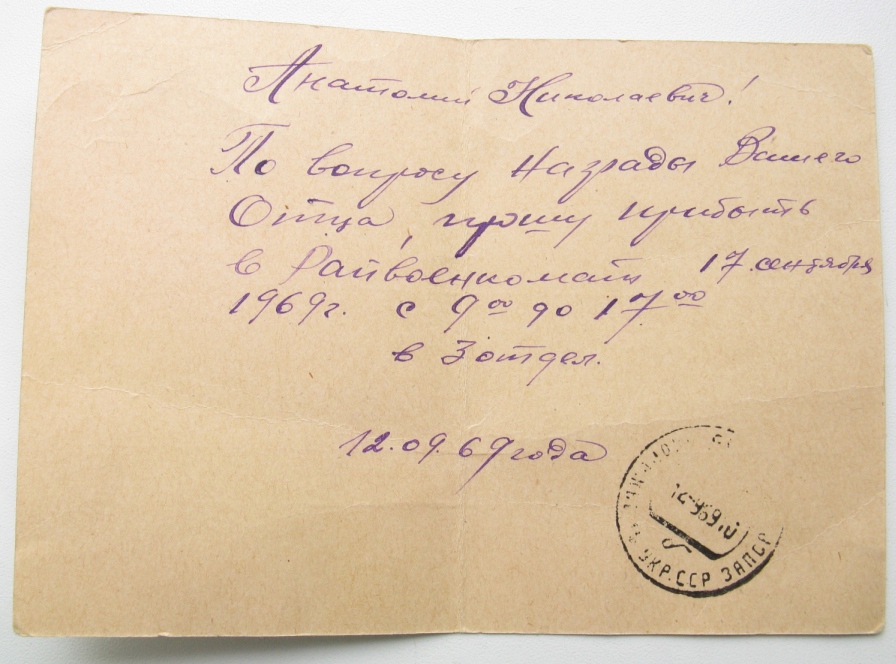 Анатолий Николаевич!
По вопросу Награды Вашего
Отца, прошу прибыть
в Райвоенкомат 17 сентября
1969г. с 9⁰⁰ до 17⁰⁰
в 3 отдел.
12.09.69 года
12-969
УКР.ССР ЗАПСР